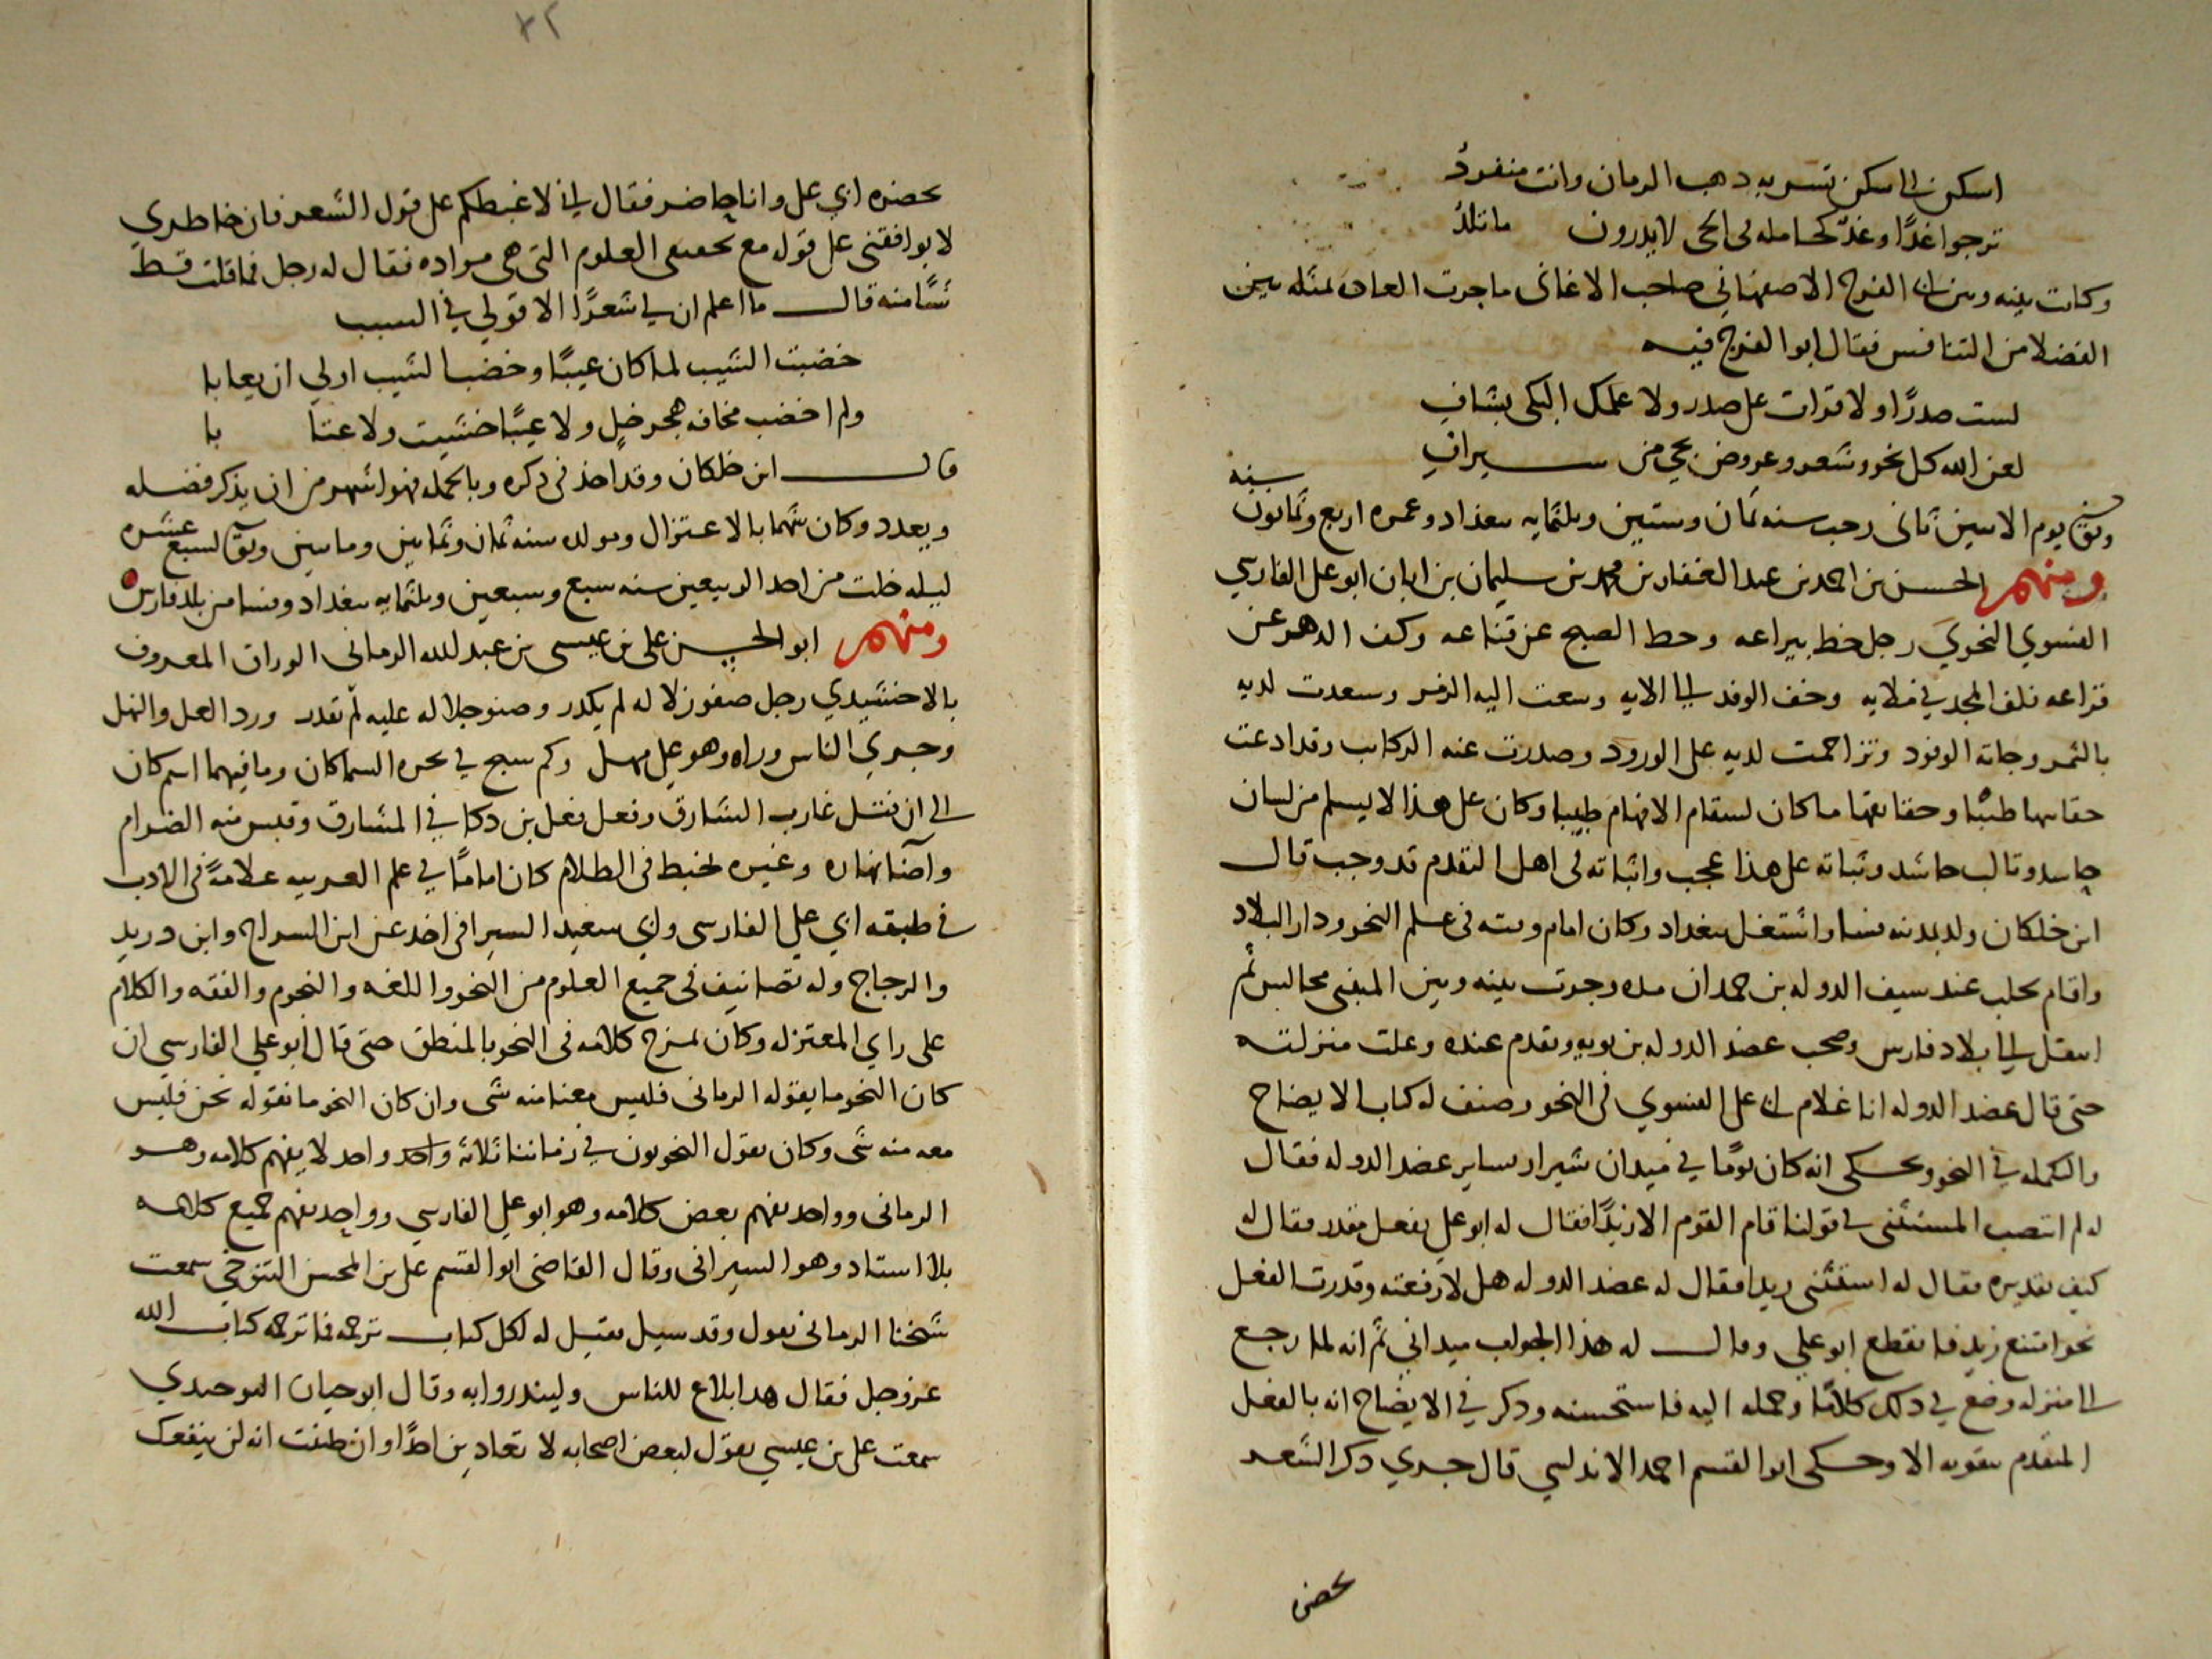 اسكن الى سكن تسر به ذهب الزمان وانت منفرد
ترجوا غدًا وغدٌ كحامله في الحي لا يدرون ما تلدُ
وكانت بينه وبين ابي الفرج الاصفهاني صاحب الاغاني ما جرت العادة لمثله بين
الفضلا من التنافس فقال ابو الفرج فيه
لست صدرًا ولا قرات على صدر ولا علمك البكي بشاف
لعن الله كل نحو وشعر وعروض يجي من سيراف
وتوفي يوم الاثنين ثاني رجب سنه ثمان وستين وثلثمايه ببغداد وعمره اربع وثمانون سنة
ومنهم الحسن بن احمد بن عبد الغفار بن محمد بن سليمان بن ابان ابو علي الفارسي
الفسوي النحوي رجل خط بيراعه وحط الصبح عن قناعه وكف الدهر عن
قراعه فلف المجد في ملايه وخف الوفد الى الايه وسعت اليه الزمر وسعدت لديه
بالثمر وجاته الوفود وتزاحمت لديه على الورود وصدرت عنه الركاب وقد ادعت
حقايبها طيبًا وحقايقها ما كان لسقام الافهام طبيبا وكان على هذا لا يسلم من لسان
حاسد وتالب حاشد وثباته على هذا عجب واثباته في اهل التقدم قد وجب قال
ابن خلكان ولد بمدينه فسا واشتغل ببغداد وكان امام وقته في علم النحو ودار البلاد
واقام بحلب عند سيف الدوله بن حمدان مده وجرت بينه وبين المتنبي مجالس ثم
انتقل الى بلاد فارس وصحب عضد الدوله بن بويه وتقدم عنده وعلت منزلته
حتى قال عضد الدوله انا غلام ابي علي الفسوي في النحو وصنف له كتاب الايضاح
والتكمله في النحو وحكى انه كان يومًا في ميدان شيراز يساير عضد الدوله فقال
له لم انتصب المستثنى في قولنا قام القوم الا زيدًا فقال له ابو علي بفعل مقدر فقال له
كيف تقديره فقال له استثني زيدا فقال له عضد الدوله هل لا رفعته وقدرت الفعل
نحو امتنع زيد فانقطع ابو علي وقال له هذا الجواب ميداني ثم انه لما رجع
الى منزله وضع في ذلك كلامًا وحمله اليه فاستحسنه وذكر في الايضاح انه بالفعل
المتقدم بتقويه الا وحكى ابو القسم احمد الاندلسي قال جري ذكر الشعر
بحضر
٤٢
بحضره ابي علي وانا حاضر فقال اني لاغبطكم على قول الشعر فان خاطري
لا يوافقني على قوله مع تحقيقي العلوم التي هي مواده فقال له رجل فما قلت قط
شيًا منه قال ما اعلم ان لي شعرًا الا قولي في الشيب
خضبت الشيب لما كان عيبًا وخضب الشيب اولي ان يعابا
ولم اخضب مخافه هجر خل ولا عيبًا خشيت ولا عتابا
قال ابن خلكان وقد اخذ في ذكره وبالجمله فهو اشهر من ان يذكر فضله
ويعدد وكان متهما بالاعتزال ومولده سنه ثمان وثمانين وماىتين وتوفي لسبع عشره
ليله خلت من احد الربيعين سنه سبع وسبعين وثلثمايه ببغداد وفسا من بلد فارس
ومنهم ابو الحسن علي بن عيسى بن عبد الله الرماني الوراق المعروف
بالاخشيدي رجل صفو زلاله لم يكدر وصنو جلاله عليه لم يقدر ورد العل والنهل
وجري الناس وراه وهو على مهل وكم سبح في بحره السماكان وما فيهما اسم كان
الى ان فتل غارب الشارق وفعل فعل بن ذكا في المشارق وقبس منه الضرام
وآضا نهاره وغيره يخبط في الظلام كان امامًا في علم العربيه علامةً في الادب
في طبقه ابي علي الفارسي وابي سعيد السيرافي اخذ عن ابن السراج وابن دريد
والزجاج وله تصانيف في جميع العلوم من النحو واللغه والنجوم والفقه والكلام
على راي المعتزله وكان يمزج كلامه في النحو بالمنطق حتى قال ابو علي الفارسي ان
كان النحو ما يقوله الرماني فليس معنا منه شي وان كان النحو ما نقوله نحن فليس
معه منه شي وكان يقول النحويون في زماننا ثلاثه واحد واحد لا يفهم كلامه وهو
الرماني وواحد يفهم بعض كلامه وهو ابو علي الفارسي وواحد يفهم جميع كلامه
بلا استاد وهو السيرافي وقال القاضي ابو القسم علي بن المحسن التنوخي سمعت
شيخنا الرماني يقول وقد سيل فقيل له لكل كتاب ترجمه فما ترجمه كتاب الله
عز وجل فقال هذا بلاغ للناس ولينذروا به وقال ابو حيان التوحيدي
سمعت علي بن عيسي يقول لبعض اصحابه لا تعادين احدًا وان ظننت انه لن ينفعك